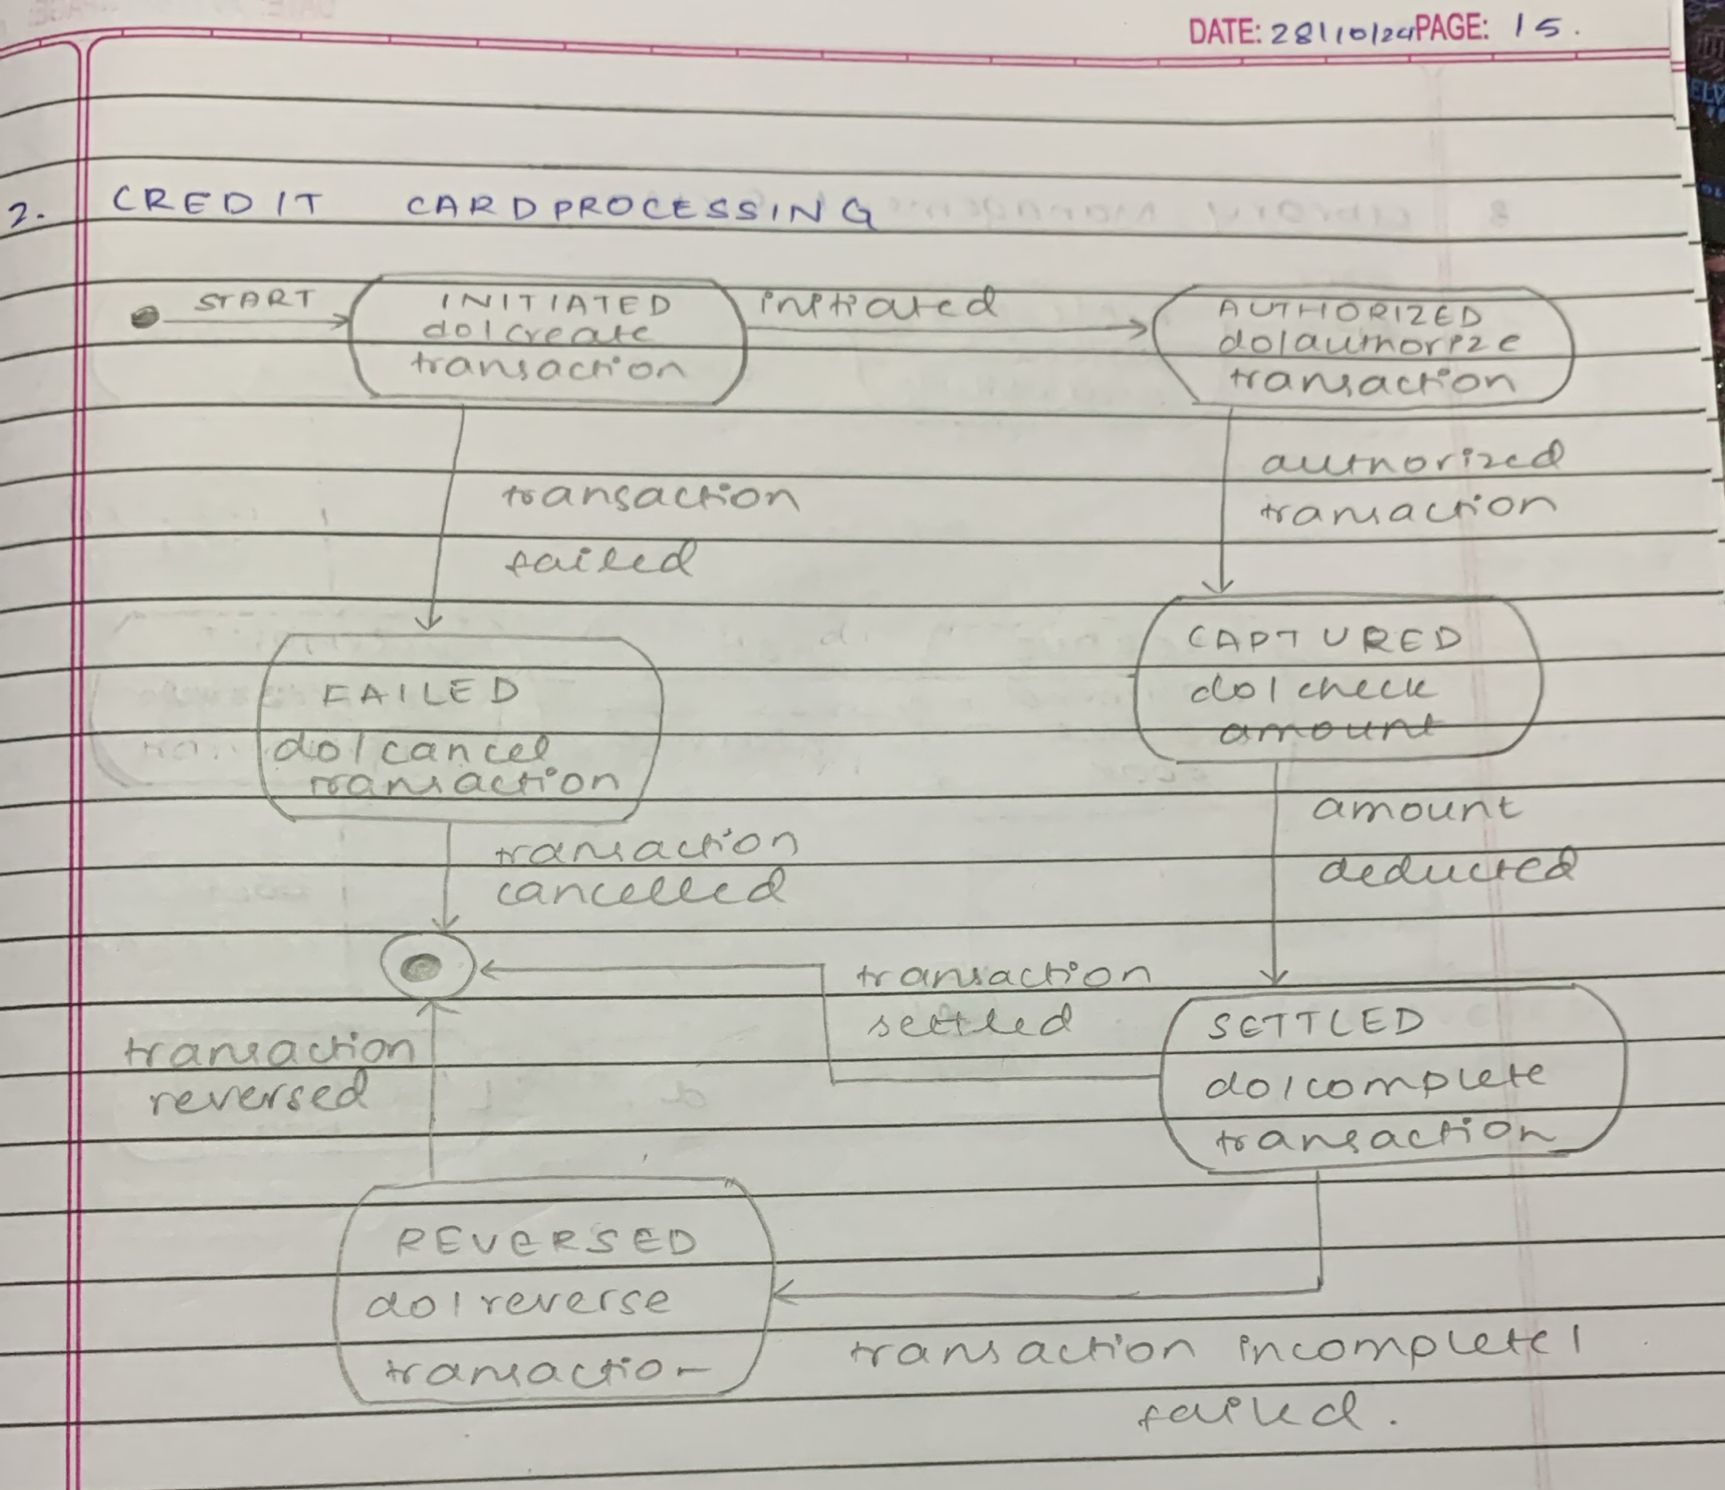 DATE: 28/10/24 PAGE: 15.
2. CREDIT CARD PROCESSING
START
INITIATED
do/create
transaction
initiated
AUTHORIZED
do/authorize
transaction
transaction
failed
authorized
transaction
FAILED
do/cancel
transaction
CAPTURED
do/check
amount
transaction
cancelled
amount
deducted
transaction
settled
SETTLED
do/complete
transaction
transaction
reversed
REVERSED
do/reverse
transaction
transaction incomplete/
failed.